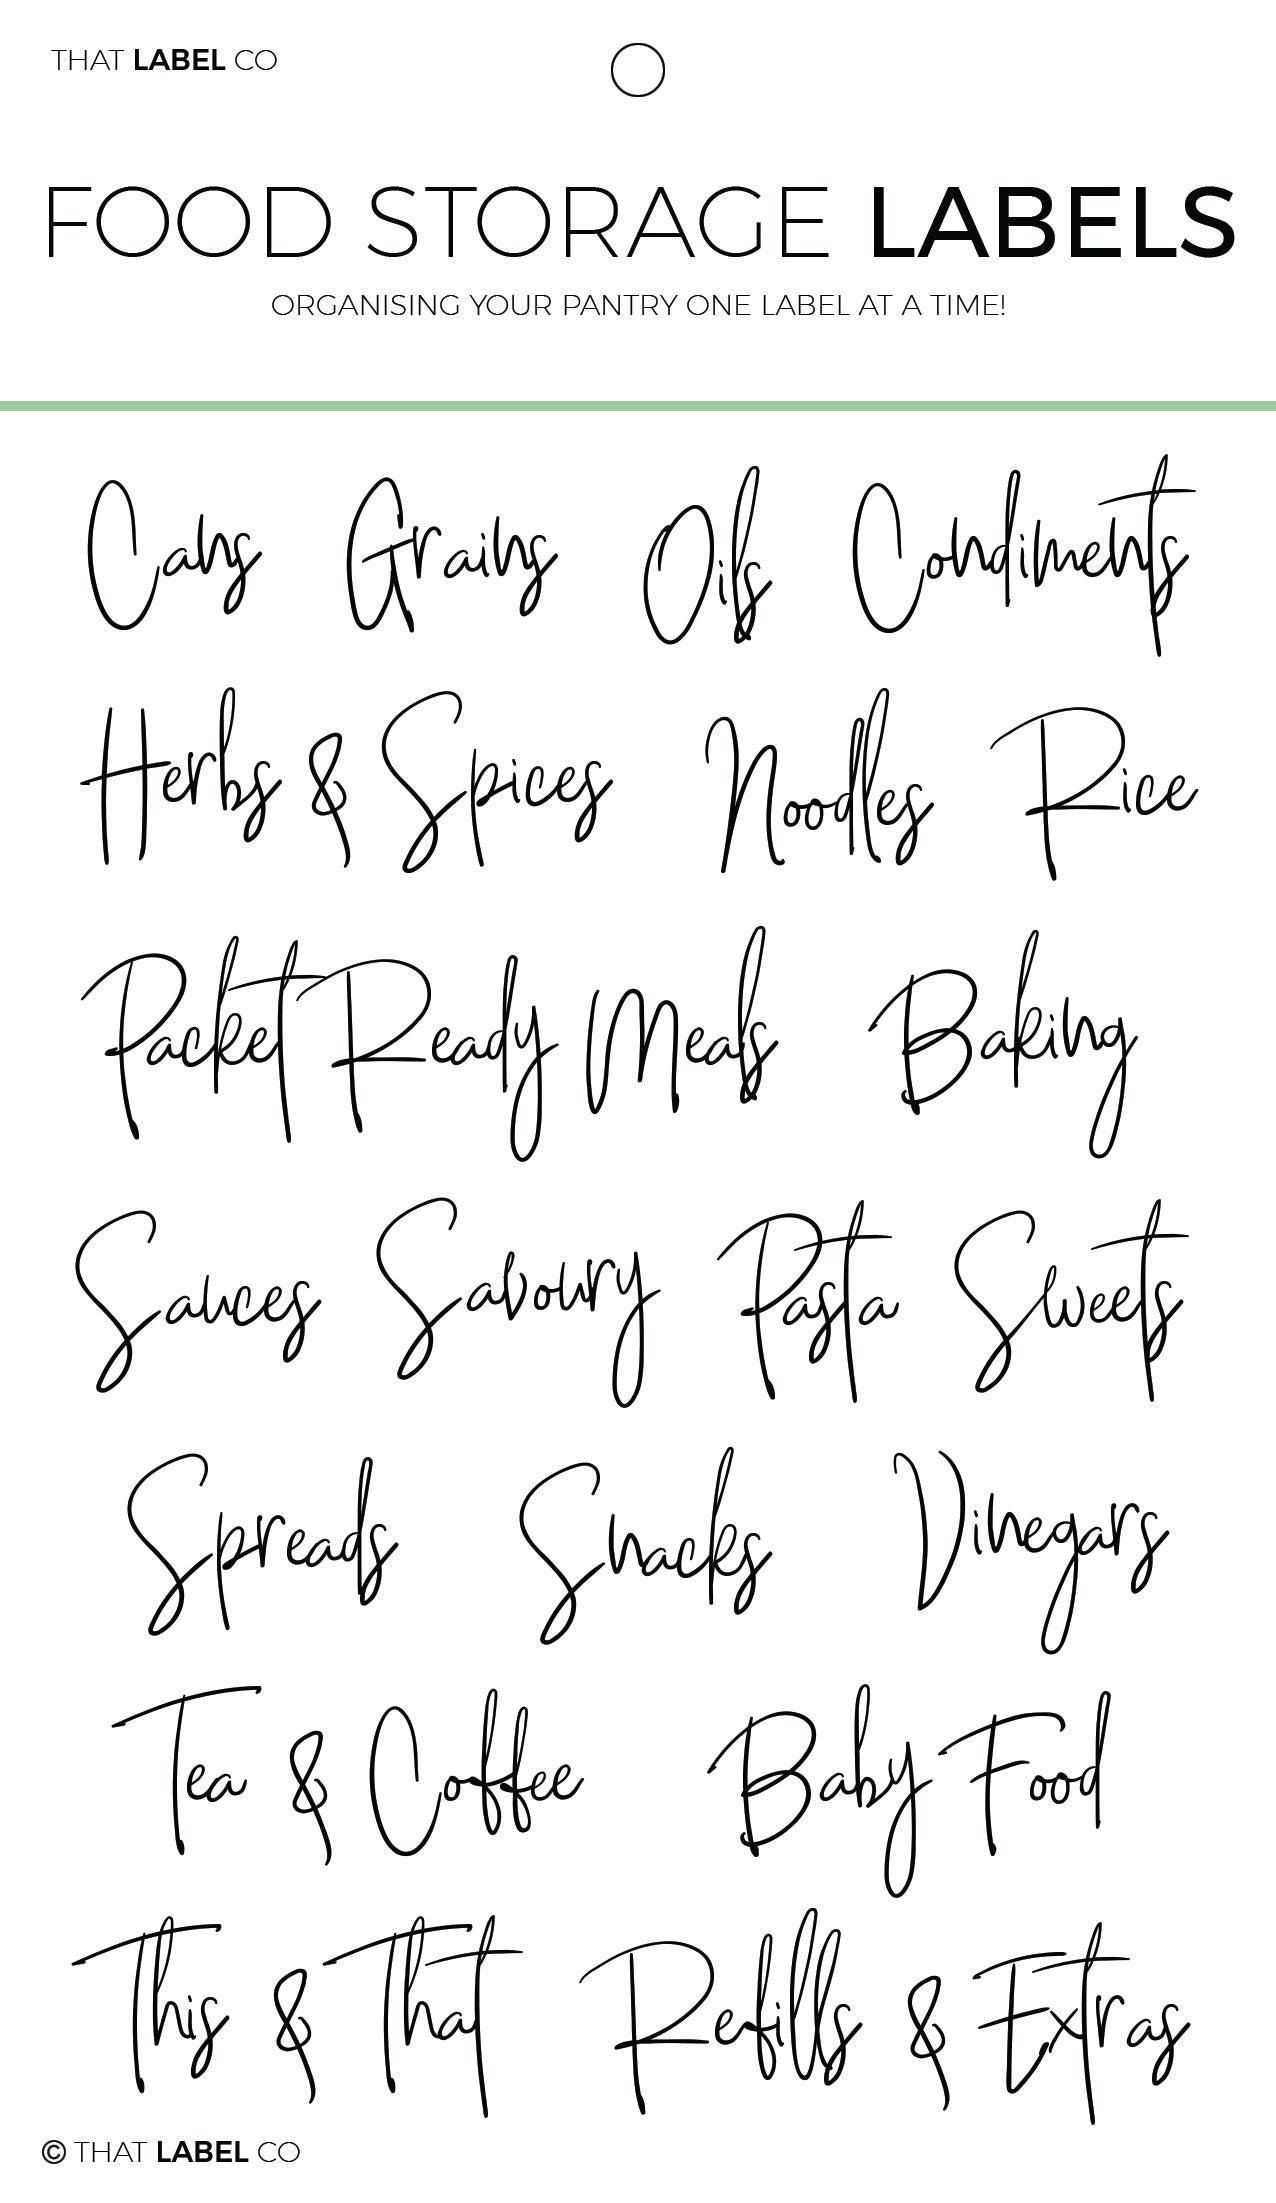 THAT LABEL CO
FOOD STORAGE LABELS
ORGANISING YOUR PANTRY ONE LABEL AT A TIME!
Cans Grains Oils Condiments
Herbs & Spices Noodles Rice
Packet Ready Meals Baking
Sauces Savoury Pasta Sweets
Spreads Snacks Vinegars
Tea & Coffee Baby Food
This & That Refills & Extras
© THAT LABEL CO